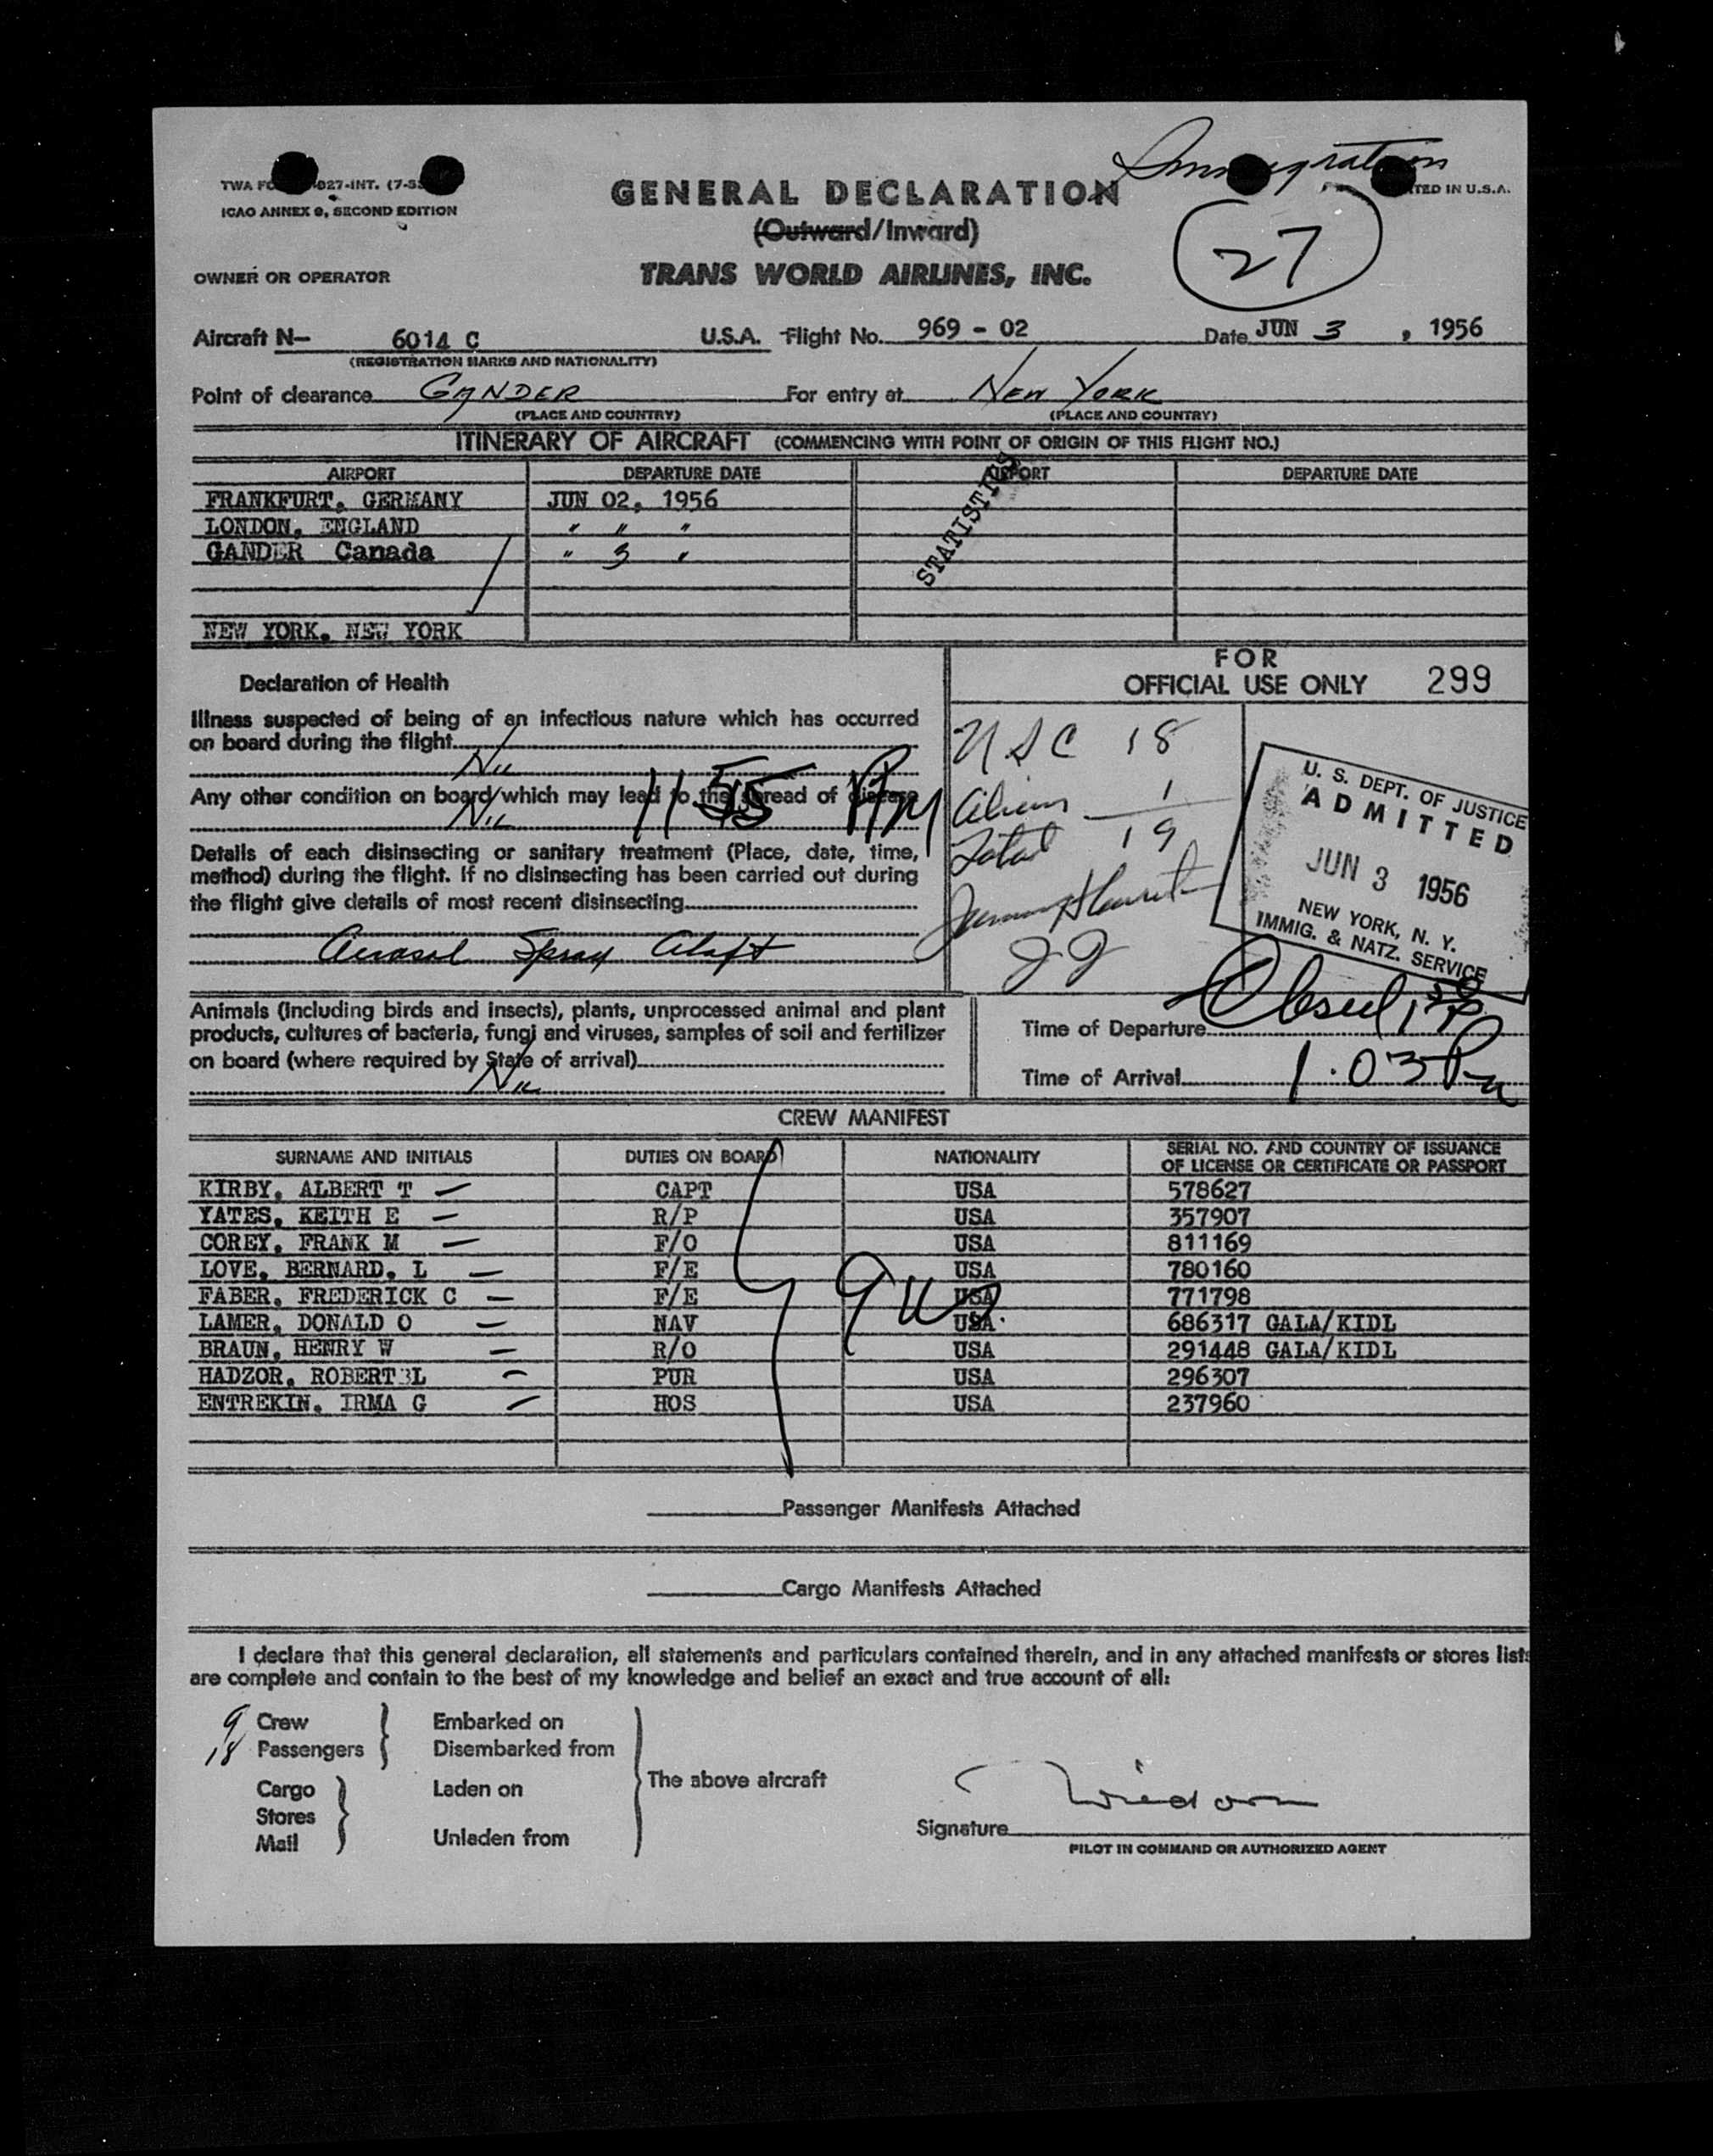 Immigration
TWA FO 027-INT. (7-5
TED IN U.S.A.
ICAO ANNEX 9, SECOND EDITION
GENERAL DECLARATION
(Outward/Inward)
27
OWNER OR OPERATOR
TRANS WORLD AIRLINES, INC.
Aircraft N- 6014 C U.S.A. Flight No. 969 - 02 Date JUN 3, 1956
(REGISTRATION MARKS AND NATIONALITY)
Point of clearance GANDER For entry at NEW YORK
(PLACE AND COUNTRY) (PLACE AND COUNTRY)
ITINERARY OF AIRCRAFT (COMMENCING WITH POINT OF ORIGIN OF THIS FLIGHT NO.)
AIRPORT DEPARTURE DATE AIRPORT DEPARTURE DATE
FRANKFURT, GERMANY JUN 02, 1956
LONDON, ENGLAND " " "
GANDER Canada " 3 "
STATISTICS
NEW YORK, NEW YORK
Declaration of Health
Illness suspected of being of an infectious nature which has occurred
on board during the flight
Nil
Any other condition on board which may lead to the spread of disease
Nil
1155 PM
Details of each disinsecting or sanitary treatment (Place, date, time,
method) during the flight. If no disinsecting has been carried out during
the flight give details of most recent disinsecting
Aerasol Spray Aloft
FOR
OFFICIAL USE ONLY 299
USC 18
Alien 1
Total 19
U. S. DEPT. OF JUSTICE
ADMITTED
JUN 3 1956
NEW YORK, N. Y.
IMMIG. & NATZ. SERVICE
Animals (including birds and insects), plants, unprocessed animal and plant
products, cultures of bacteria, fungi and viruses, samples of soil and fertilizer
on board (where required by State of arrival)
Nil
Time of Departure Closed
Time of Arrival 1.03 Pm
CREW MANIFEST
SURNAME AND INITIALS DUTIES ON BOARD NATIONALITY SERIAL NO. AND COUNTRY OF ISSUANCE
OF LICENSE OR CERTIFICATE OR PASSPORT
KIRBY, ALBERT T CAPT USA 578627
YATES, KEITH E R/P USA 357907
COREY, FRANK M F/O USA 811169
LOVE, BERNARD, L F/E USA 780160
FABER, FREDERICK C F/E USA 771798
LAMER, DONALD O NAV USA 686317 GALA/KIDL
BRAUN, HENRY W R/O USA 291448 GALA/KIDL
HADZOR, ROBERT L PUR USA 296307
ENTREKIN, IRMA G HOS USA 237960
Passenger Manifests Attached
Cargo Manifests Attached
I declare that this general declaration, all statements and particulars contained therein, and in any attached manifests or stores lists
are complete and contain to the best of my knowledge and belief an exact and true account of all:
9 Crew Embarked on
18 Passengers Disembarked from
The above aircraft
Cargo Laden on
Stores
Mail Unladen from
Signature
PILOT IN COMMAND OR AUTHORIZED AGENT